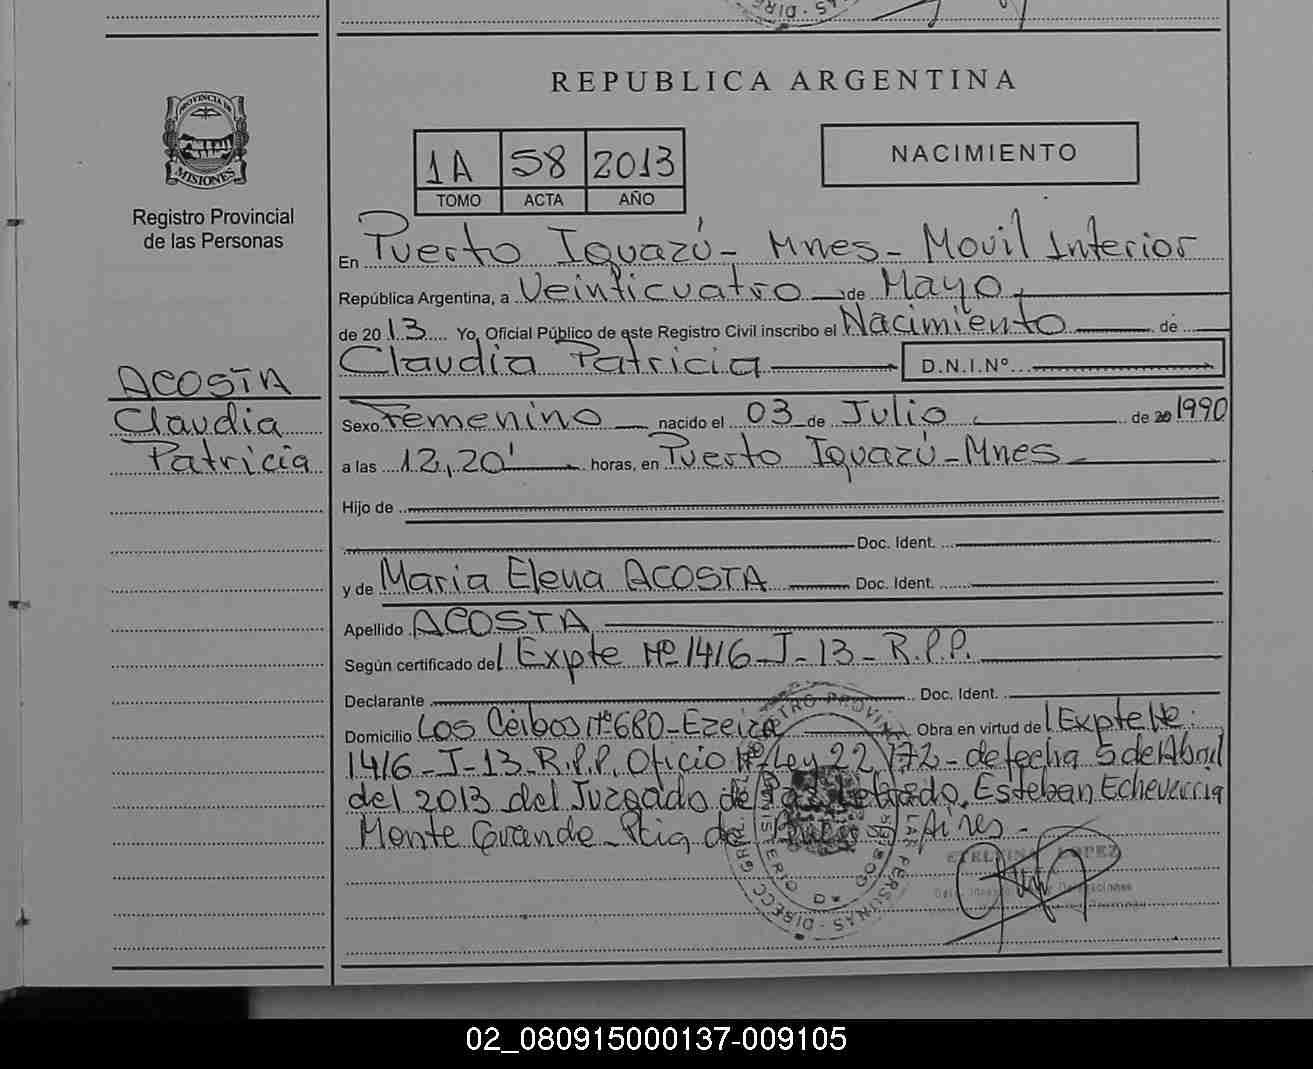 REPUBLICA ARGENTINA
PROVINCIA DE
MISIONES
Registro Provincial
de las Personas
1A 58 2013
TOMO ACTA AÑO
NACIMIENTO
En Puerto Iguazú - Mnes - Movil Interior
República Argentina, a Veinticuatro de Mayo
de 2013 Yo, Oficial Público de este Registro Civil inscribo el Nacimiento de
Claudia Patricia D.N.I.Nº
ACOSTA
Claudia
Patricia
Sexo Femenino nacido el 03 de Julio de 20 1990
a las 12,20' horas, en Puerto Iguazú - Mnes
Hijo de
Doc. Ident.
y de Maria Elena ACOSTA Doc. Ident.
Apellido ACOSTA
Según certificado del Expte Nº 1416-J-13-R.P.P.
Declarante Doc. Ident.
Domicilio Los Céibos Nº 680 - Ezeiza Obra en virtud del Expte Nº:
1416-J-13-R.P.P. Oficio Nº Ley 22172 - de fecha 5 de Abril
del 2013 del Juzgado de Paz Letrado, Esteban Echeverria
Monte Grande - Pcia de Buenos Aires -
LOPEZ
02_080915000137-009105